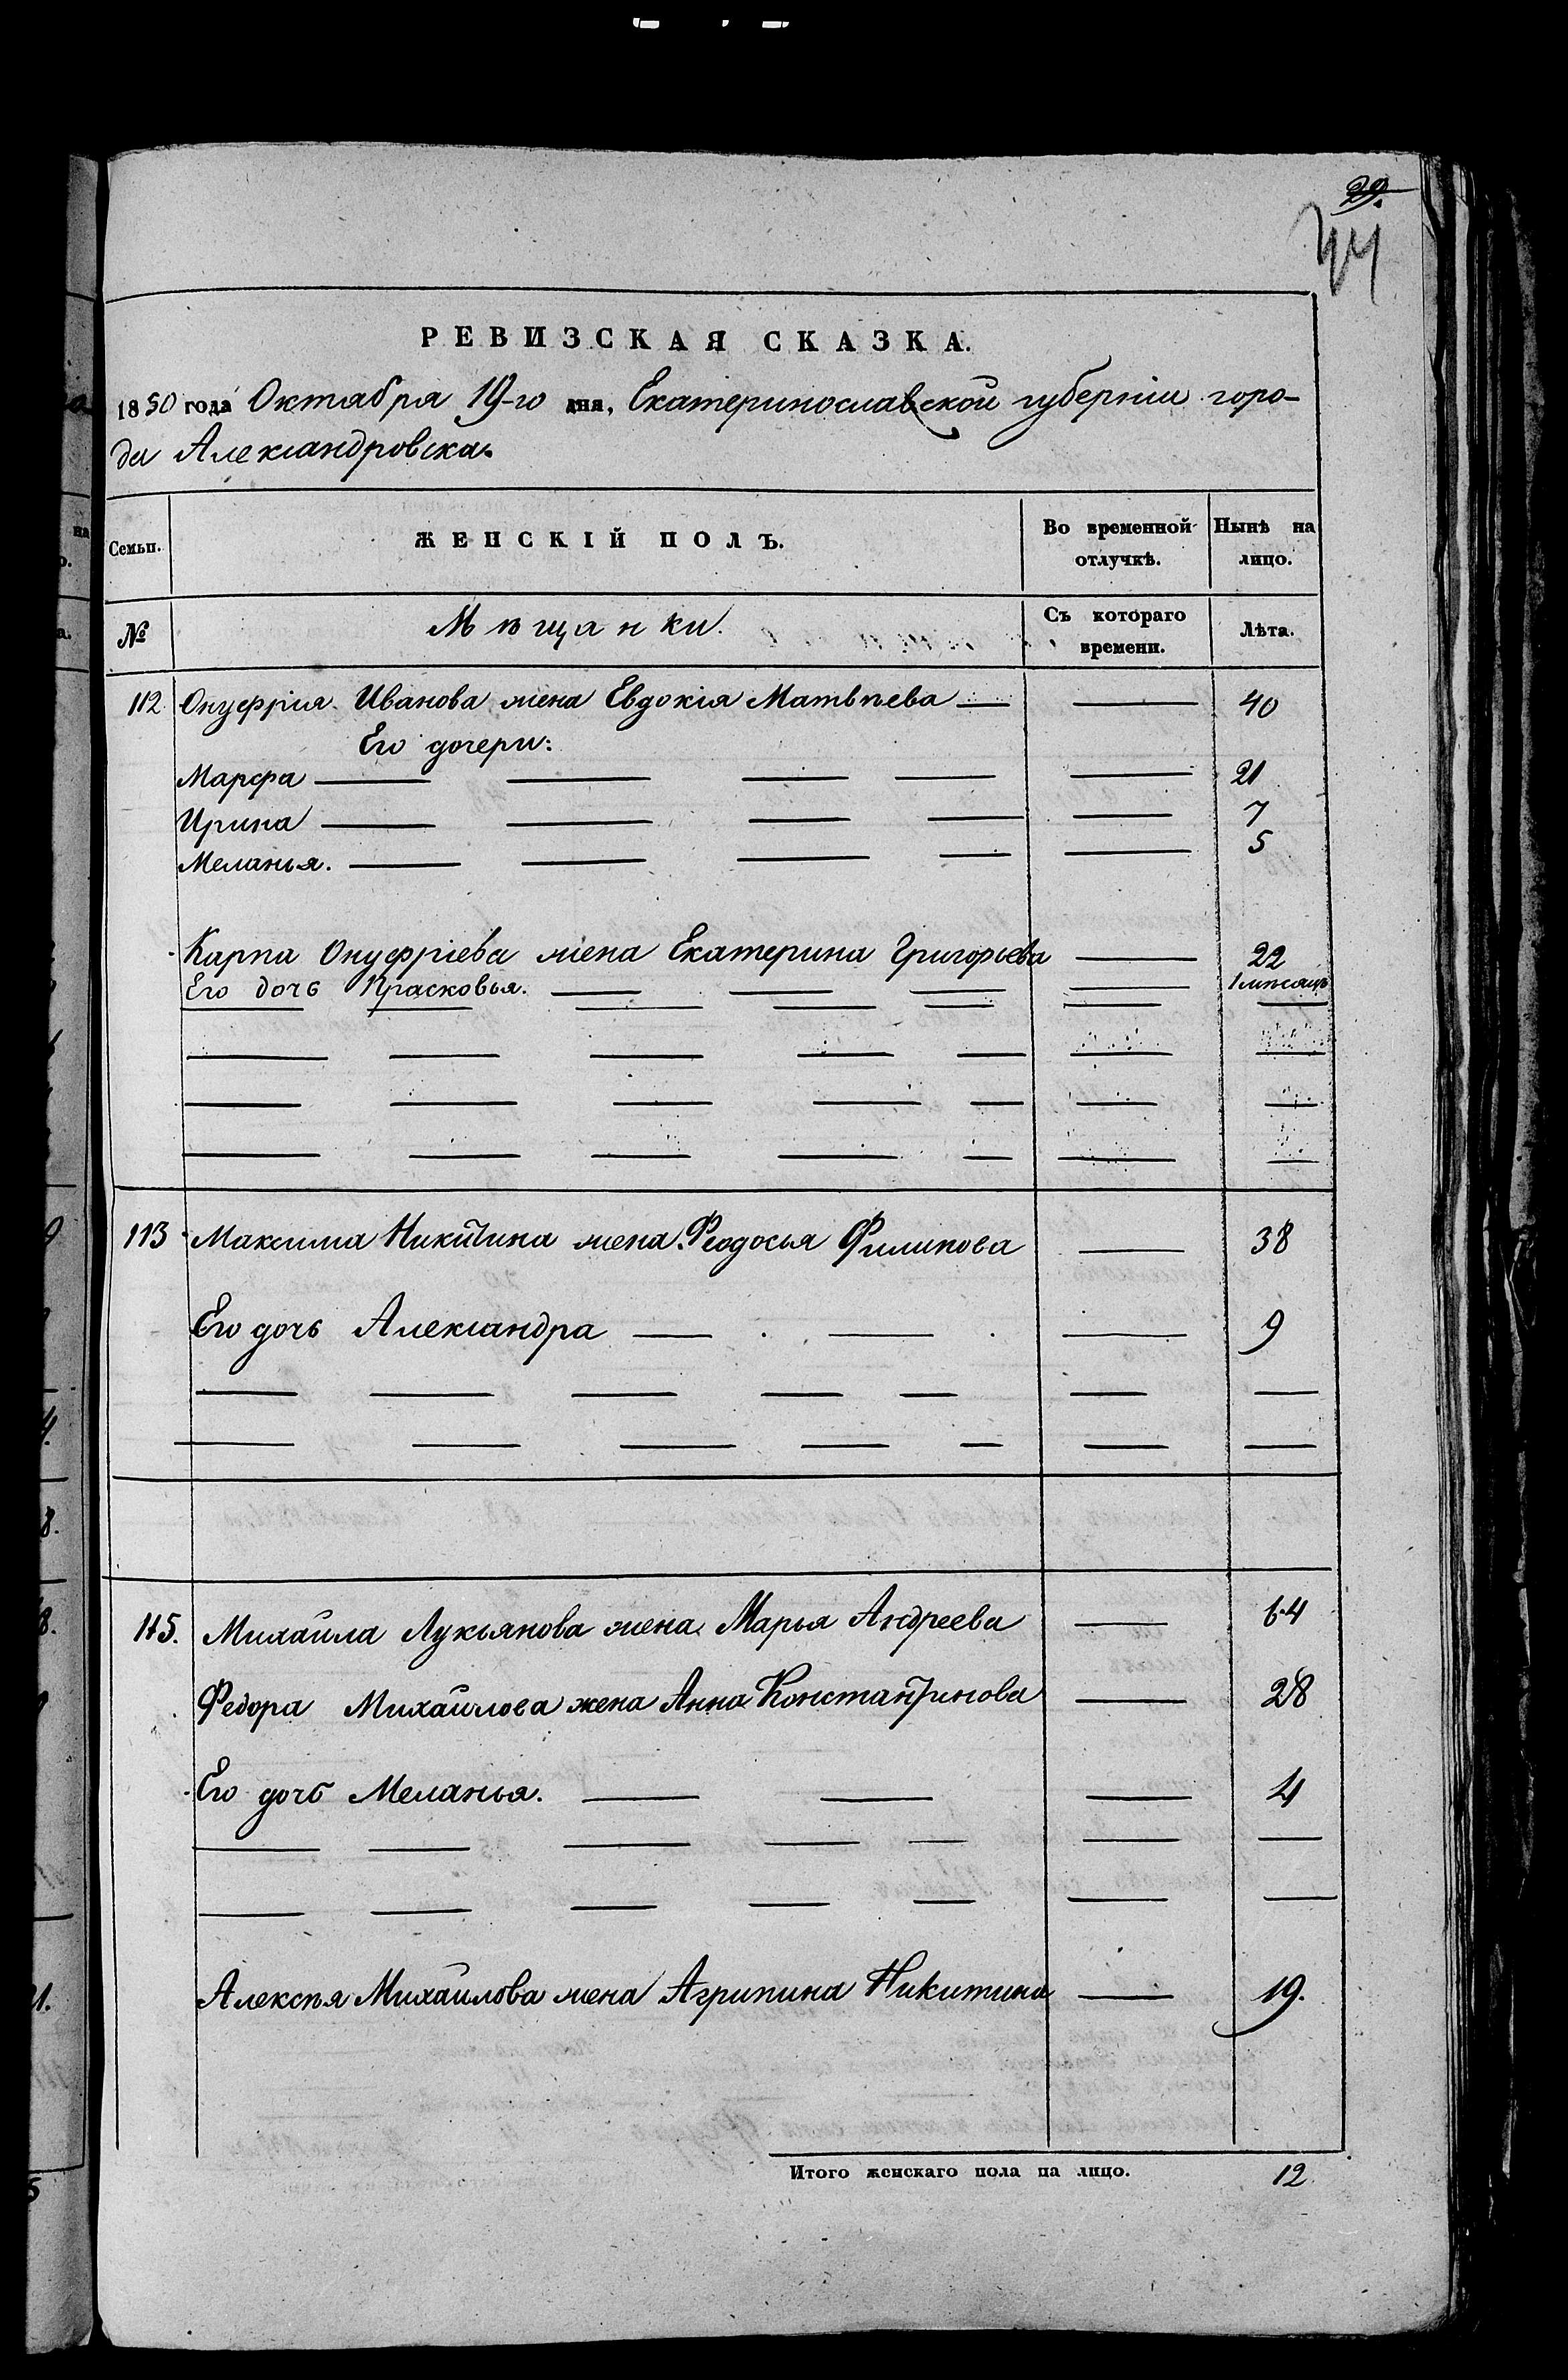 29.
РЕВИЗСКАЯ СКАЗКА.
1850 года Октября 19-го дня, Екатеринославской губерніи горо-
да Александровска.
Семьи. ЖЕНСКІЙ ПОЛЪ. Во временной отлучкѣ. Нынѣ на лицо.
№ Мѣщанки. Съ котораго времени. Лѣта.
112 Онуфрія Иванова жена Евдокія Матвѣева — — 40
Его дочери:
Марфа — — — — — 21
Ирина — — — — — 7
Меланья. — — — — — 5
Карпа Онуфріева жена Екатерина Григорьева — 22
Его дочь Прасковья. — — — — 1 мѣсяцъ
113 Максима Никитина жена Феодосья Филипова — 38
Его дочь Александра — — — 9
115. Михайла Лукьянова жена Марья Андреева — 64
Федора Михайлова жена Анна Константинова — 28
Его дочь Меланья. — — — 4
Алексѣя Михайлова жена Агрипина Никитина — 19.
Итого женскаго пола на лицо. 12